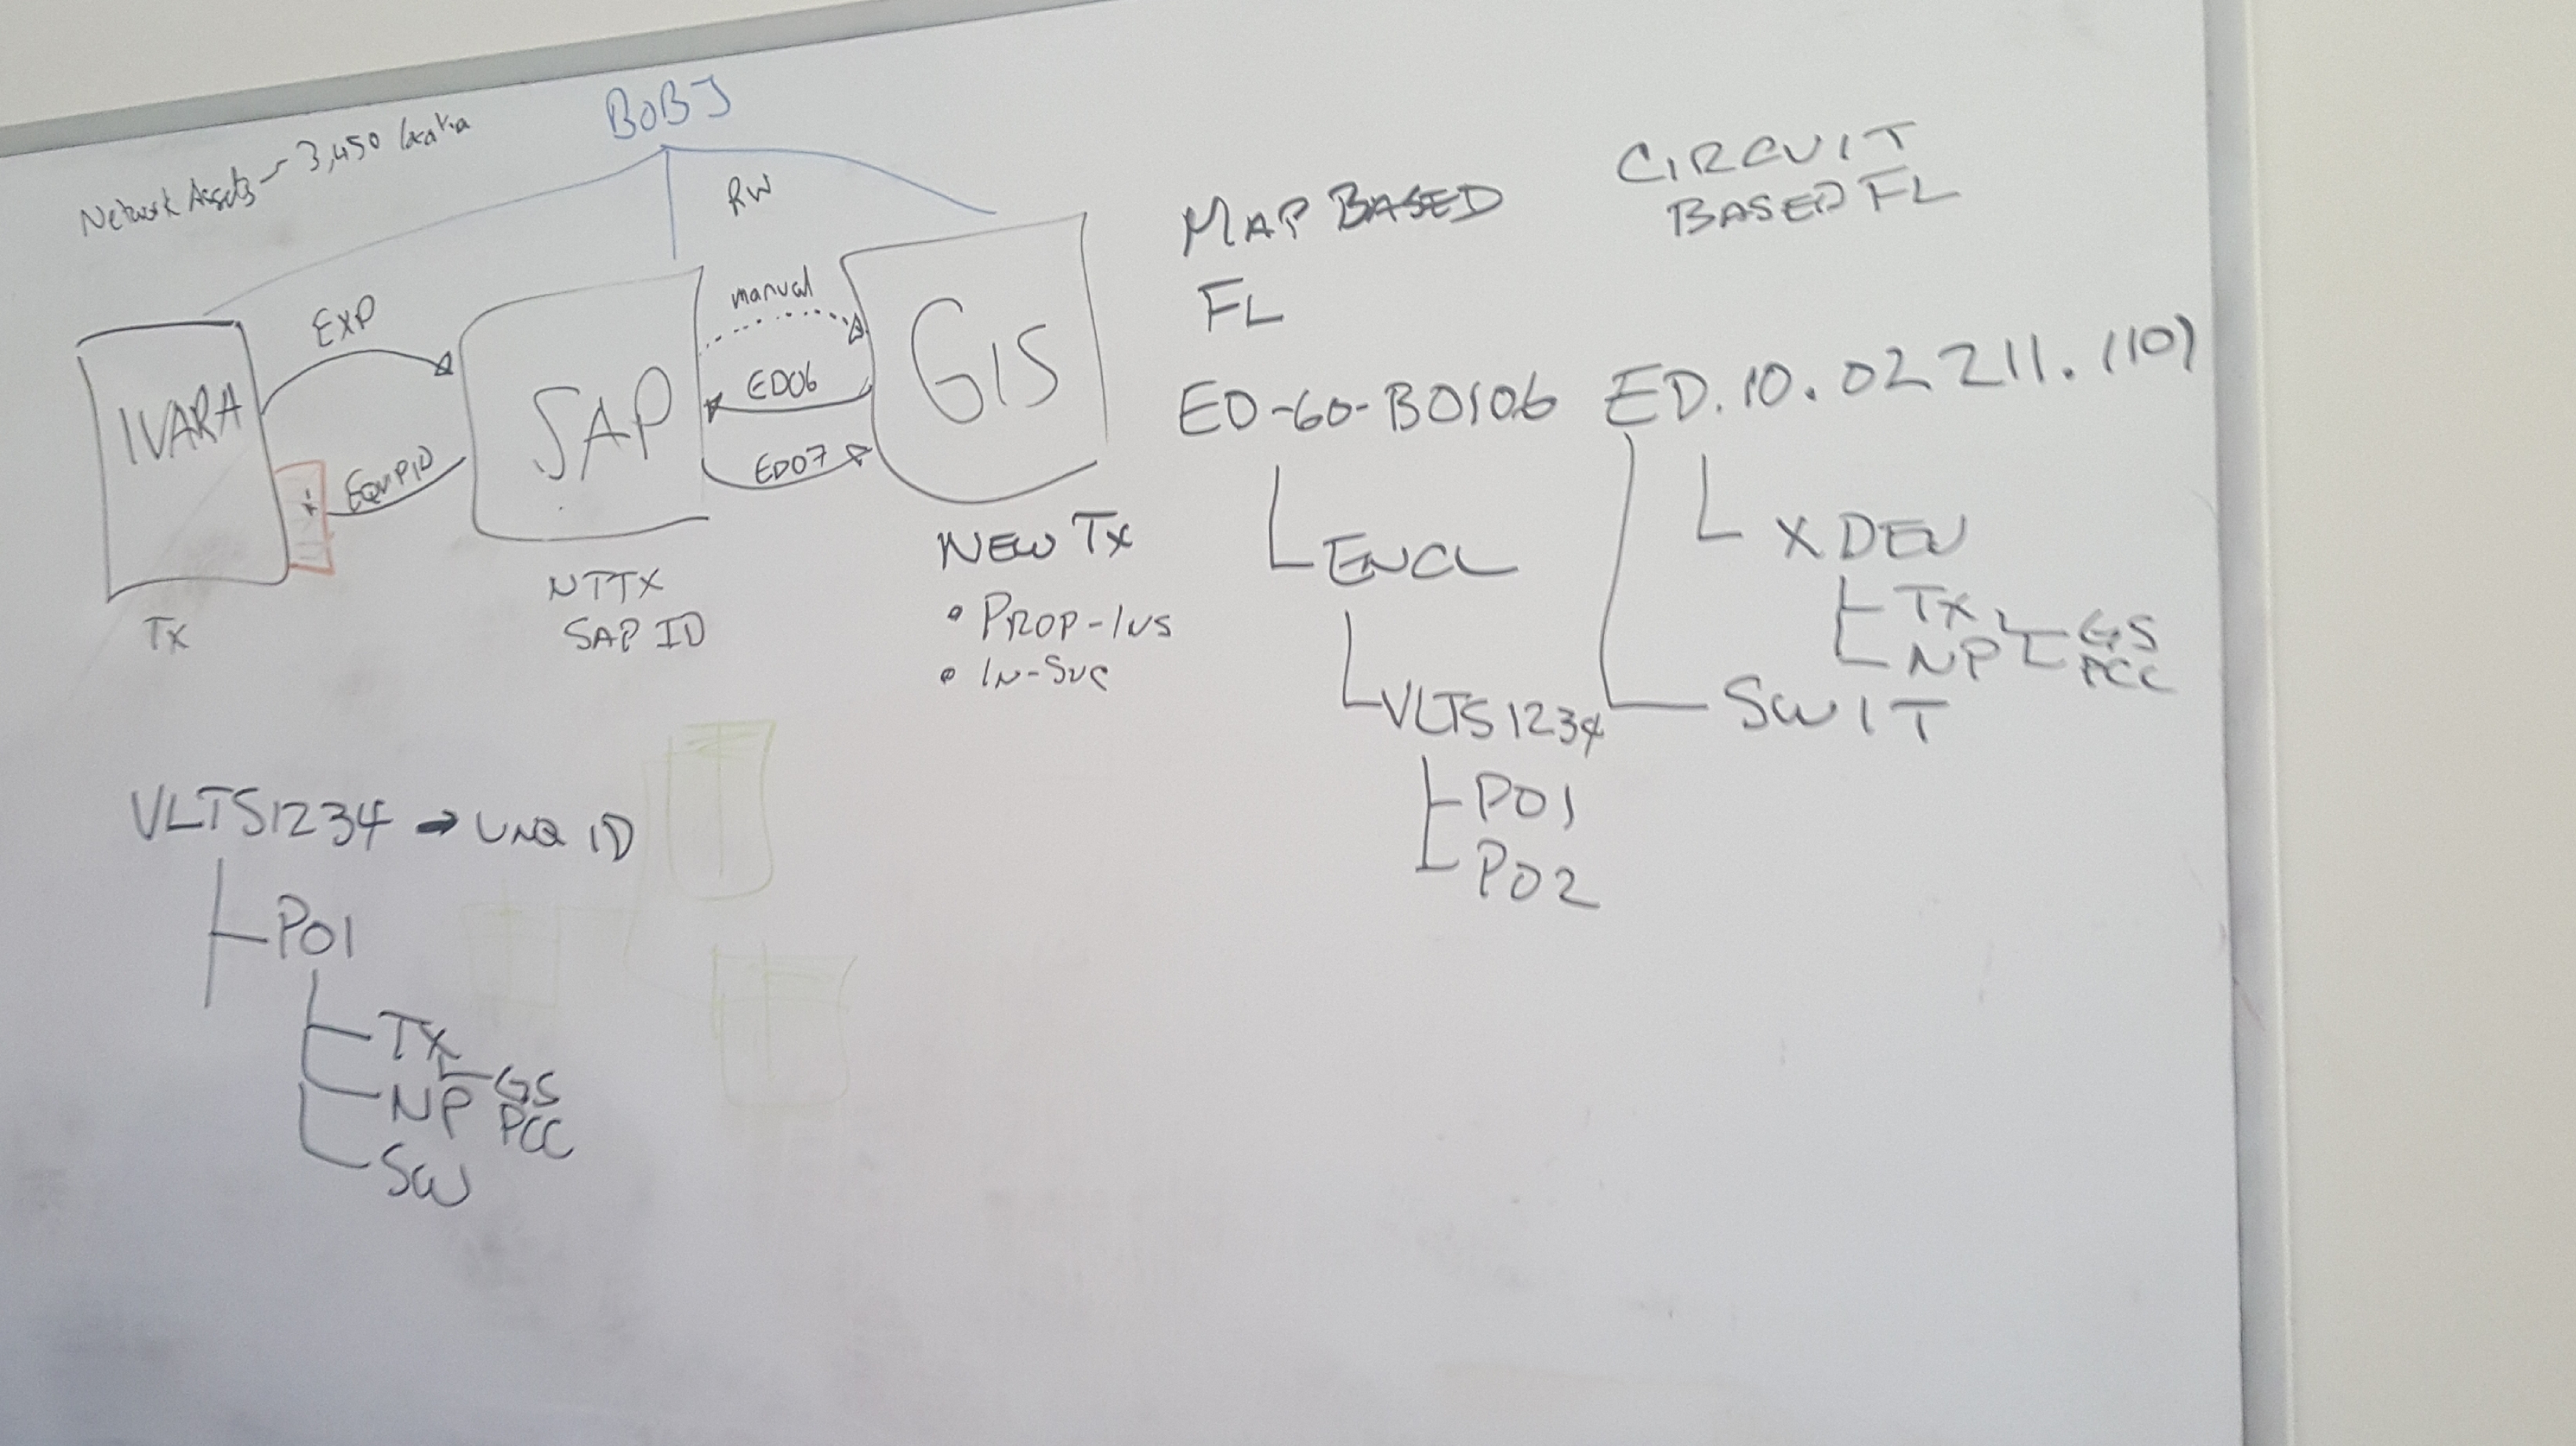 BOBJ
Network Assets - 3,450
RW
EXP
manual
IVARA
SAP
GIS
ED06
EQUPID
ED07
Tx
NTTX
SAP ID
NEW Tx
• PROP-INS
• IN-SVC
VLTS1234 → UNQ ID
P01
TX
GS
NP
PCC
SW
MAP BASED
FL
ED-60-B0106
ENCL
VLTS1234
P01
P02
CIRCUIT
BASED FL
ED.10.02211.(10)
XDEV
TX
GS
NP
PCC
SWIT